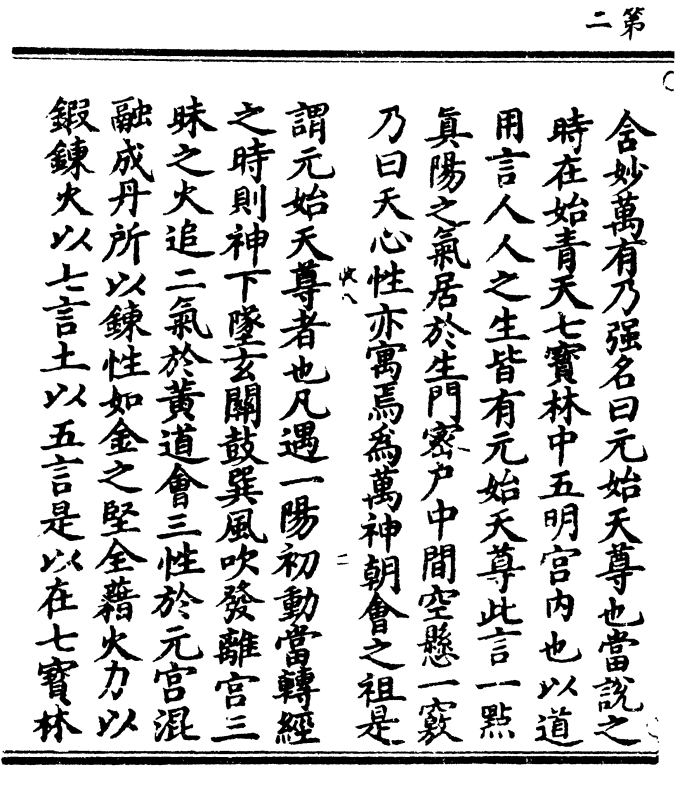 第二
含妙萬有乃强名曰元始天尊也當說之
時在始青天七寳林中五明宫内也以道
用言人人之生皆有元始天尊此言一點
眞陽之氣居於生門宻户中間空懸一竅
乃曰天心性亦寓焉爲萬神朝會之祖是
二
謂元始天尊者也凡遇一陽初動當轉經
之時則神下墜玄關鼓巽風吹發離宫三
昧之火追二氣於黄道會三性於元宫混
融成丹所以鍊性如金之堅全藉火力以
鍜鍊火以七言土以五言是以在七寳林